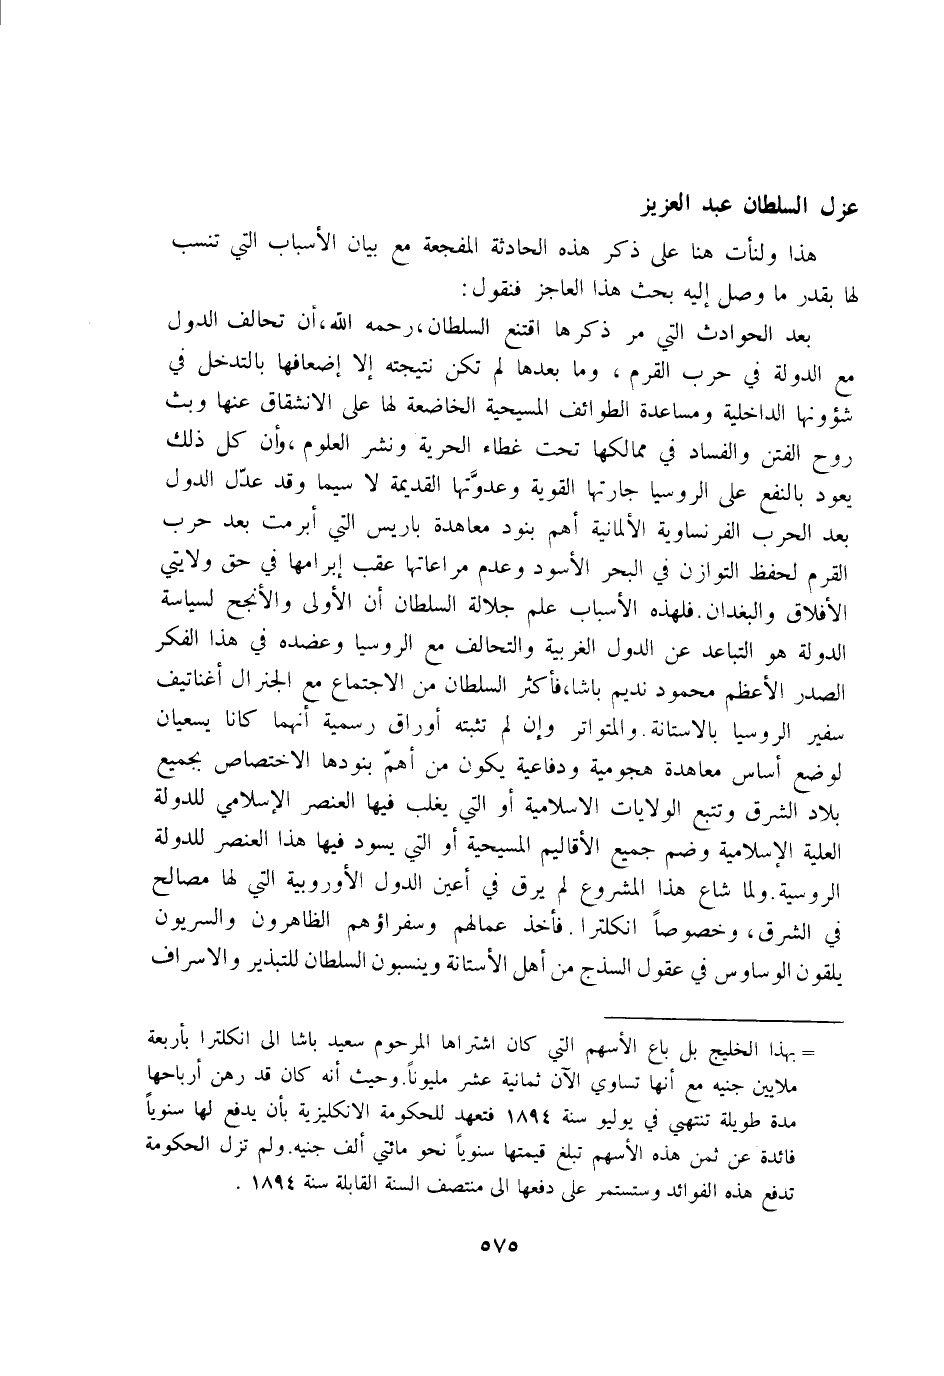 عزل السلطان عبد العزيز
هذا ولنأت هنا على ذكر هذه الحادثة المفجعة مع بيان الأسباب التي تنسب
لها بقدر ما وصل إليه بحث هذا العاجز فنقول:
بعد الحوادث التي مر ذكرها اقتنع السلطان،رحمه الله،أن تحالف الدول
مع الدولة في حرب القرم ، وما بعدها لم تكن نتيجته إلا إضعافها بالتدخل في
شؤونها الداخلية ومساعدة الطوائف المسيحية الخاضعة لها على الانشقاق عنها وبث
روح الفتن والفساد في ممالكها تحت غطاء الحرية ونشر العلوم ،وأن كل ذلك
يعود بالنفع على الروسيا جارتها القوية وعدوَّتها القديمة لا سيما وقد عدّل الدول
بعد الحرب الفرنساوية الألمانية أهم بنود معاهدة باريس التي أبرمت بعد حرب
القرم لحفظ التوازن في البحر الأسود وعدم مراعاتها عقب إبرامها في حق ولايتي
الأفلاق والبغدان.فلهذه الأسباب علم جلالة السلطان أن الأولى والأنجح لسياسة
الدولة هو التباعد عن الدول الغربية والتحالف مع الروسيا وعضده في هذا الفكر
الصدر الأعظم محمود نديم باشا،فأكثر السلطان من الاجتماع مع الجنرال أغناتيف
سفير الروسيا بالاستانة.والمتواتر وإن لم تثبته أوراق رسمية أنهما كانا يسعيان
لوضع أساس معاهدة هجومية ودفاعية يكون من أهمّ بنودها الاختصاص بجميع
بلاد الشرق وتتبع الولايات الاسلامية أو التي يغلب فيها العنصر الإسلامي للدولة
العلية الإسلامية وضم جميع الأقاليم المسيحية أو التي يسود فيها هذا العنصر للدولة
الروسية.ولما شاع هذا المشروع لم يرق في أعين الدول الأوروبية التي لها مصالح
في الشرق، وخصوصاً انكلترا. فأخذ عمالهم وسفراؤهم الظاهرون والسريون
يلقون الوساوس في عقول السذج من أهل الأستانة وينسبون السلطان للتبذير والاسراف
= بهذا الخليج بل باع الأسهم التي كان اشتراها المرحوم سعيد باشا الى انكلترا بأربعة
ملايين جنيه مع أنها تساوي الآن ثمانية عشر مليوناً.وحيث أنه كان قد رهن أرباحها
مدة طويلة تنتهي في يوليو سنة ١٨٩٤ فتعهد للحكومة الانكليزية بأن يدفع لها سنوياً
فائدة عن ثمن هذه الأسهم تبلغ قيمتها سنوياً نحو مائتي ألف جنيه.ولم تزل الحكومة
تدفع هذه الفوائد وستستمر على دفعها الى منتصف السنة القابلة سنة ١٨٩٤ .
٥٧٥